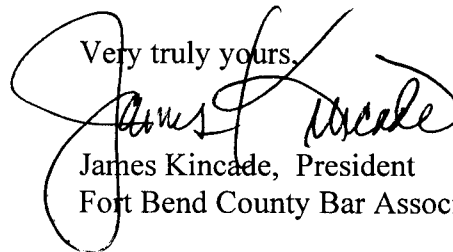 Very truly yours,
James Kincade
James Kincade, President
Fort Bend County Bar Assoc